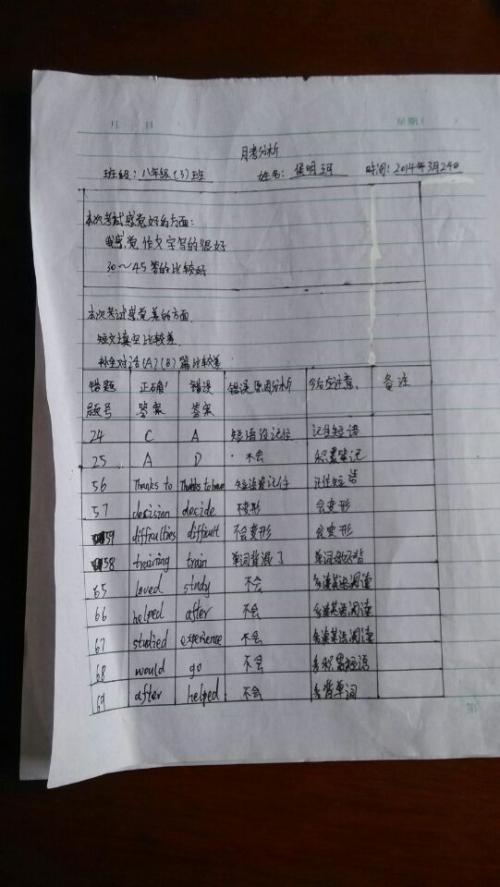 月 日 星期
月考分析
班级：八年级（3）班 姓名： 时间：2014年3月24日
本次考试感觉好的方面：
感觉作文字写的很好
30～45答的比较好
本次考试感觉差的方面
短文填空比较差
补全对话（A）（B）篇比较差
错题题号 正确答案 错误答案 错误原因分析 今后应注意 备注
24 C A 短语没记住 记住短语
25 A D 不会 积累笔记
56 Thanks to Thanks to have 短语没记住 记住短语
57 decision decide 不变形 会变形
59 difficulties difficult 不会变形 会变形
58 training train 单词背混了
65 loved study 不会 多读英语阅读
66 helped after 不会 多读英语阅读
67 studied experience 不会 多读英语阅读
68 would go 不会 多积累短语
69 after helped 不会 多背单词